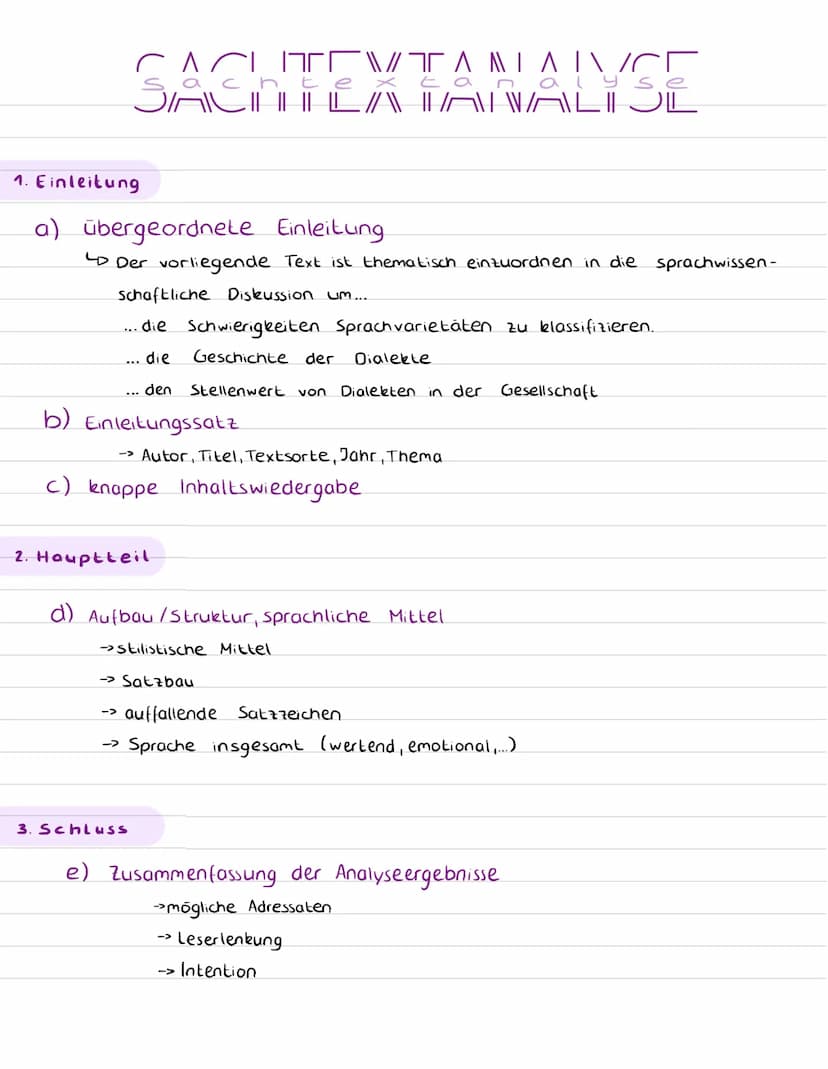 SACHTEXTANALYSE
sachtextanalyse
1. Einleitung
a) übergeordnete Einleitung
↳ Der vorliegende Text ist thematisch einzuordnen in die sprachwissen-
schaftliche Diskussion um...
... die Schwierigkeiten Sprachvarietäten zu klassifizieren.
... die Geschichte der Dialekte
... den Stellenwert von Dialekten in der Gesellschaft
b) Einleitungssatz
-> Autor, Titel, Textsorte, Jahr, Thema
c) knappe Inhaltswiedergabe
2. Hauptteil
d) Aufbau/Struktur, sprachliche Mittel
-> stilistische Mittel
-> Satzbau
-> auffallende Satzzeichen
-> Sprache insgesamt (wertend, emotional,...)
3. Schluss
e) Zusammenfassung der Analyseergebnisse
-> mögliche Adressaten
-> Leserlenkung
-> Intention